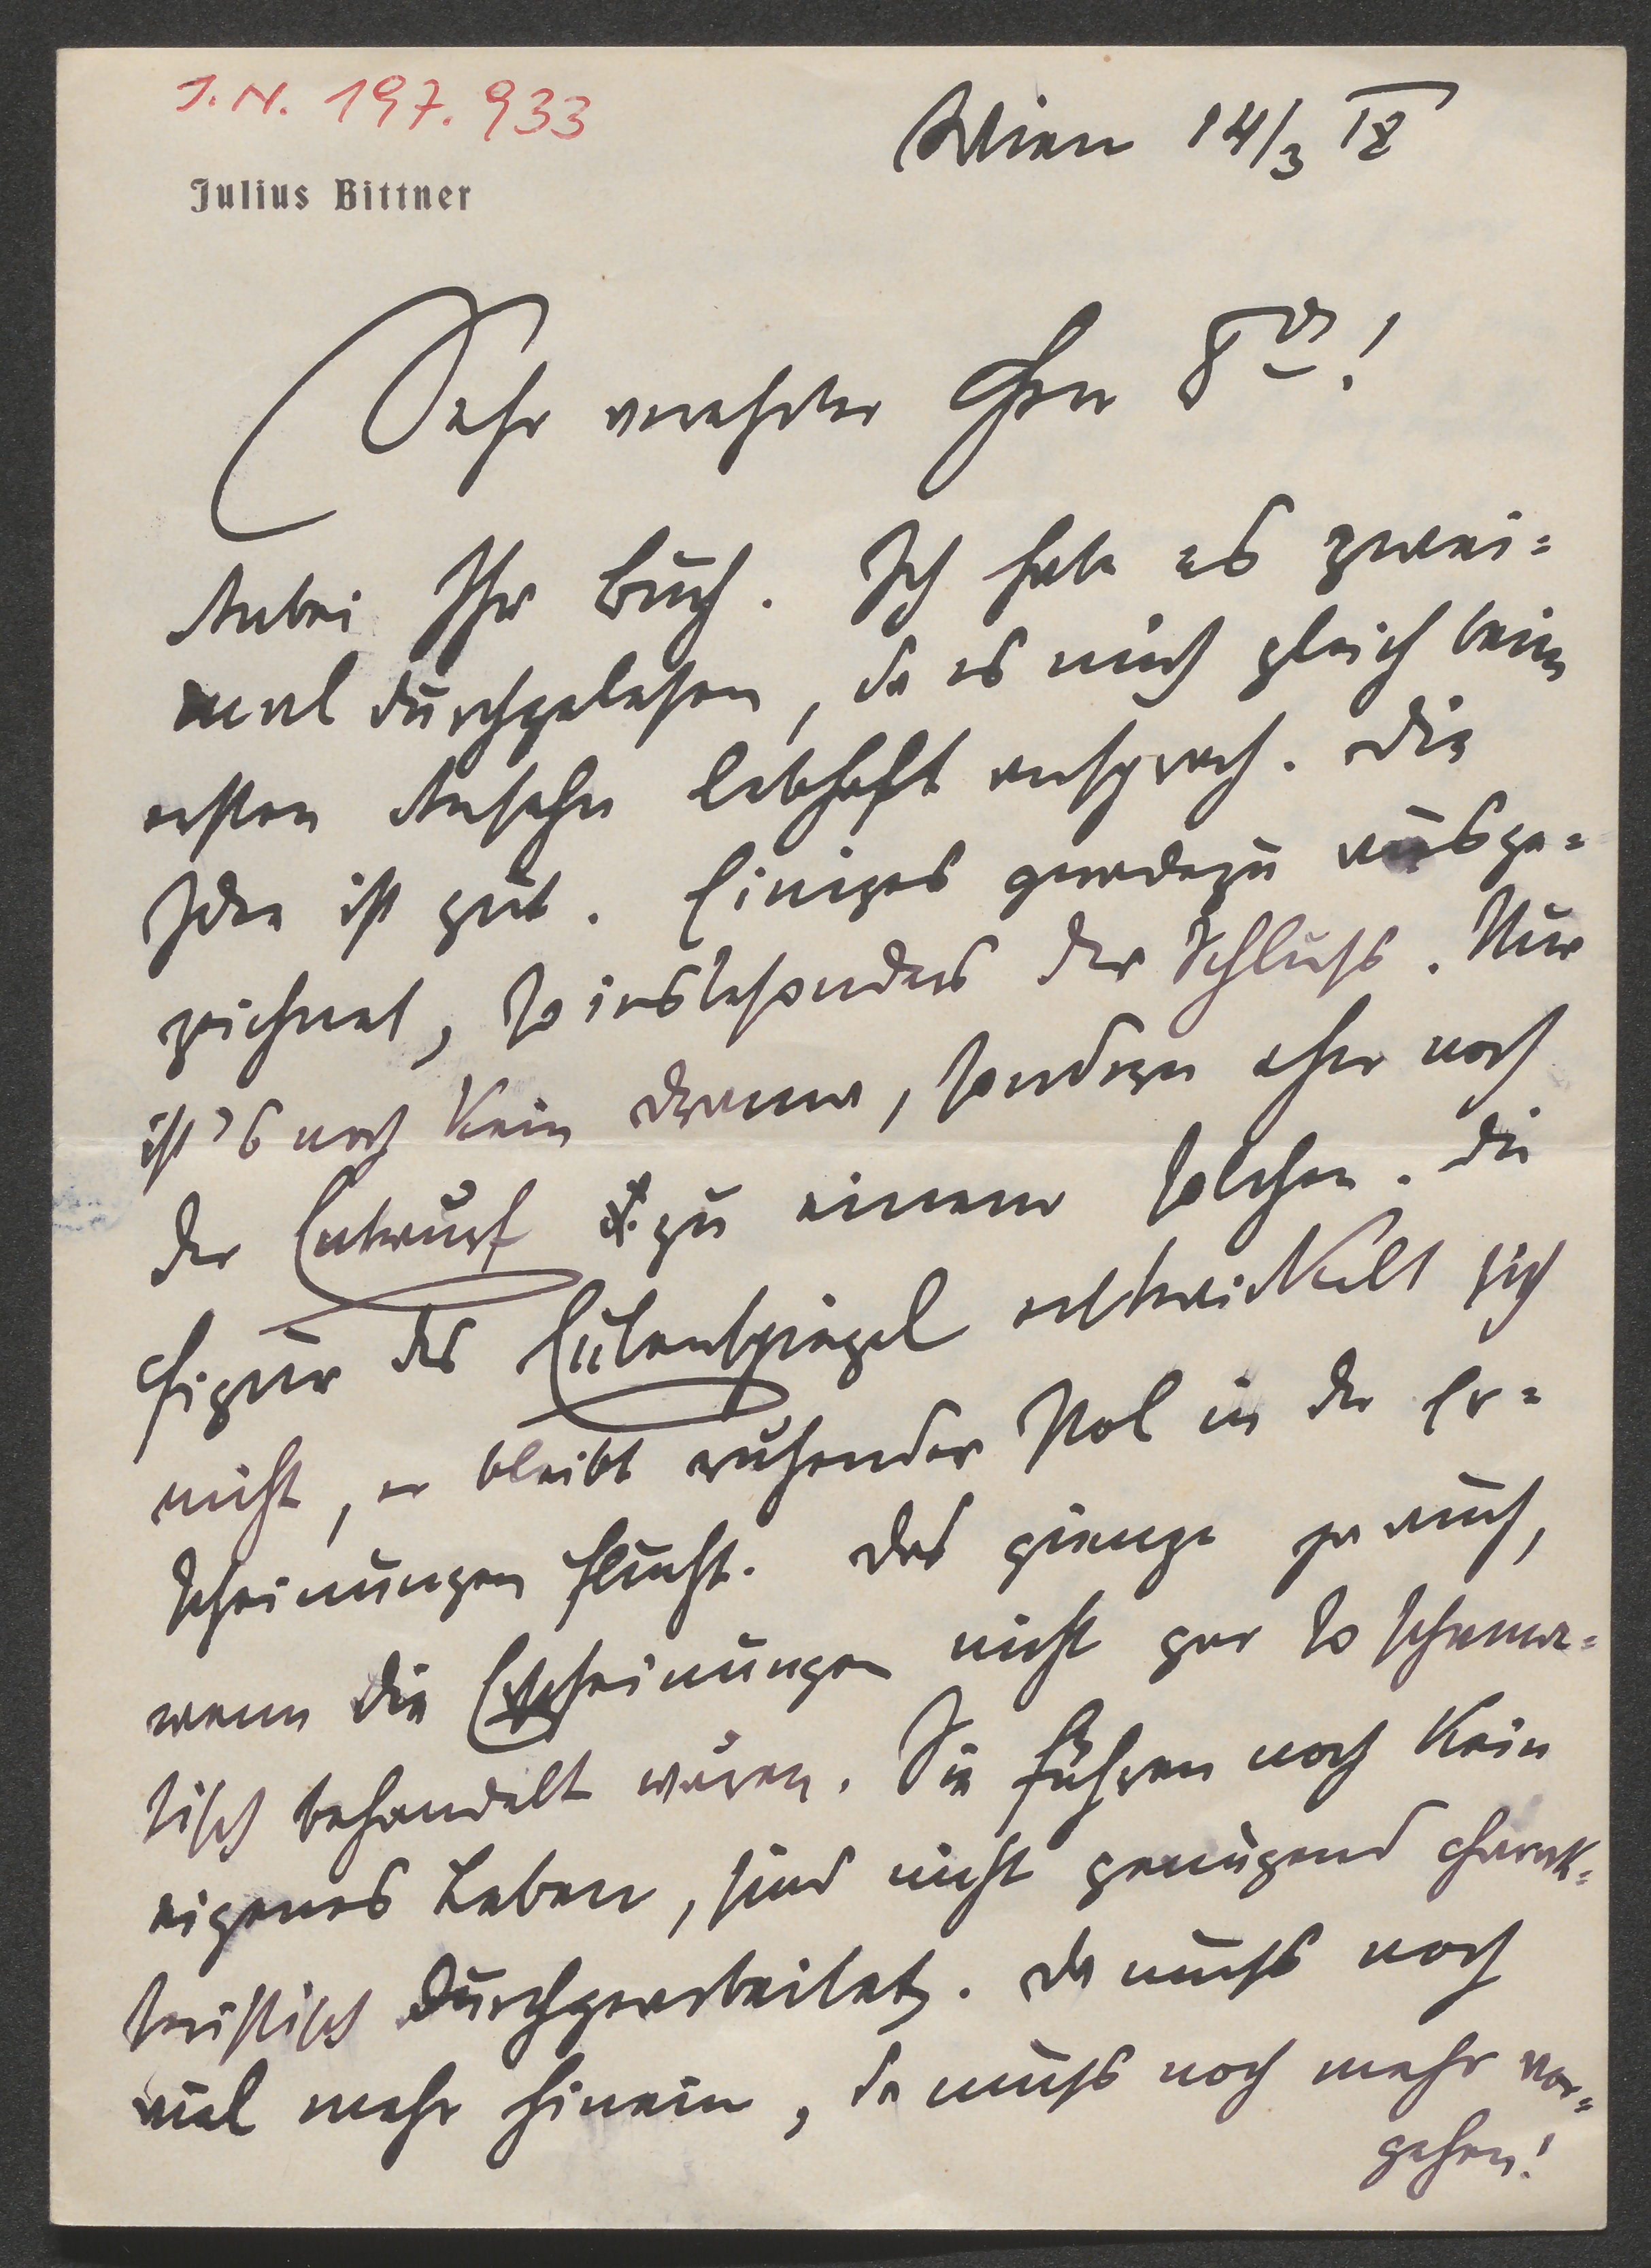 J.N. 197.933
Wien 14/3 18
Julius Bittner
Sehr verehrter Herr Dr!
Anbei Ihr Buch. Ich habe es zwei=
mal durchgelesen, da es mich gleich beim
ersten Ansehn lebhaft ansprach. Die
Idee ist gut. Einiges geradezu ausge=
zeichnet, so insbesonders der Schluss. Nur
ist's noch kein Drama, sondern eher noch
der Entwurf zu einem solchen. Die
Figur des Eulenspiegel entwickelt sich
nicht, er bleibt ruhender Pol in der Er=
scheinungen Flucht. Das gienge ja auch,
wenn die Erscheinungen nicht gar so schema=
tisch behandelt wären. Sie führen noch kein
eigenes Leben, sind nicht genügend charak=
teristisch durchgearbeitet. Da muss noch
viel mehr hinein, da muss noch mehr vor=
gehen!